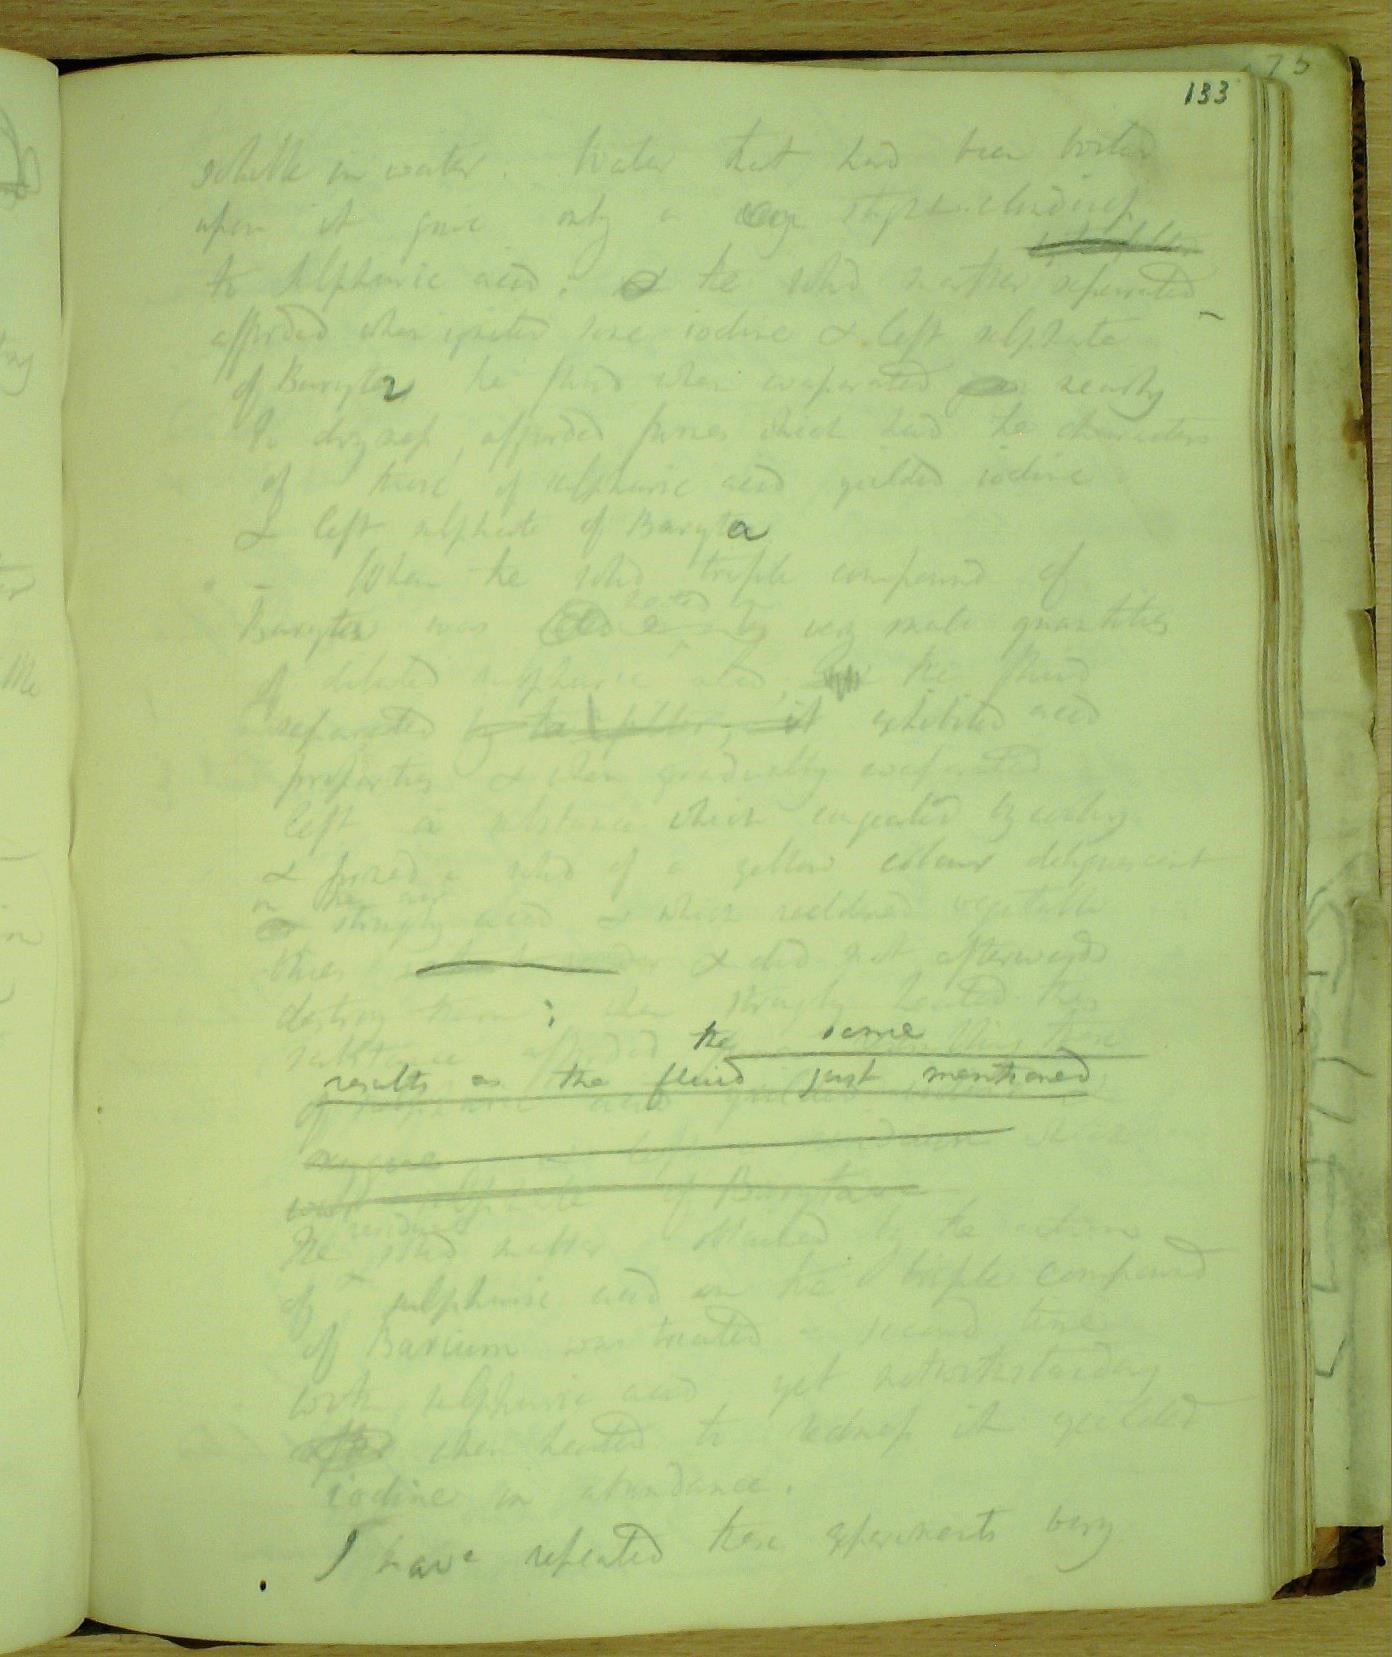 133
soluble in water. Water that had been boiled
upon it gave only a slight cloudiness
to sulphuric acid; & the solid matter separated
afforded when ignited some iodine & left sulphate
of Baryta the fluid when evaporated nearly
to dryness, afforded fumes which had the characters
of those of sulphuric acid yielded iodine
& left sulphate of Baryta
- When the solid triple compound of
Baryta was heated by very small quantities
of diluted sulphuric acid, the fluid
separated by the filter, it exhibited acid
properties & when gradually evaporated
left a substance which congealed by cooling
& formed a solid of a yellow colour deliquescent
in the air
strongly acid & which reddened vegetable
blues & did not afterwards
destroy them; when strongly heated this
substance afforded the same
results as the fluid just mentioned
of sulphuric acid yielded
oxygene & left a residuum which
was sulphate of Baryta
The residual solid matter obtained by the action
of sulphuric acid on the triple compound
of Barium was treated a second time
with sulphuric acid yet notwithstanding
after when heated to redness it yielded
iodine in abundance.
I have repeated these experiments very